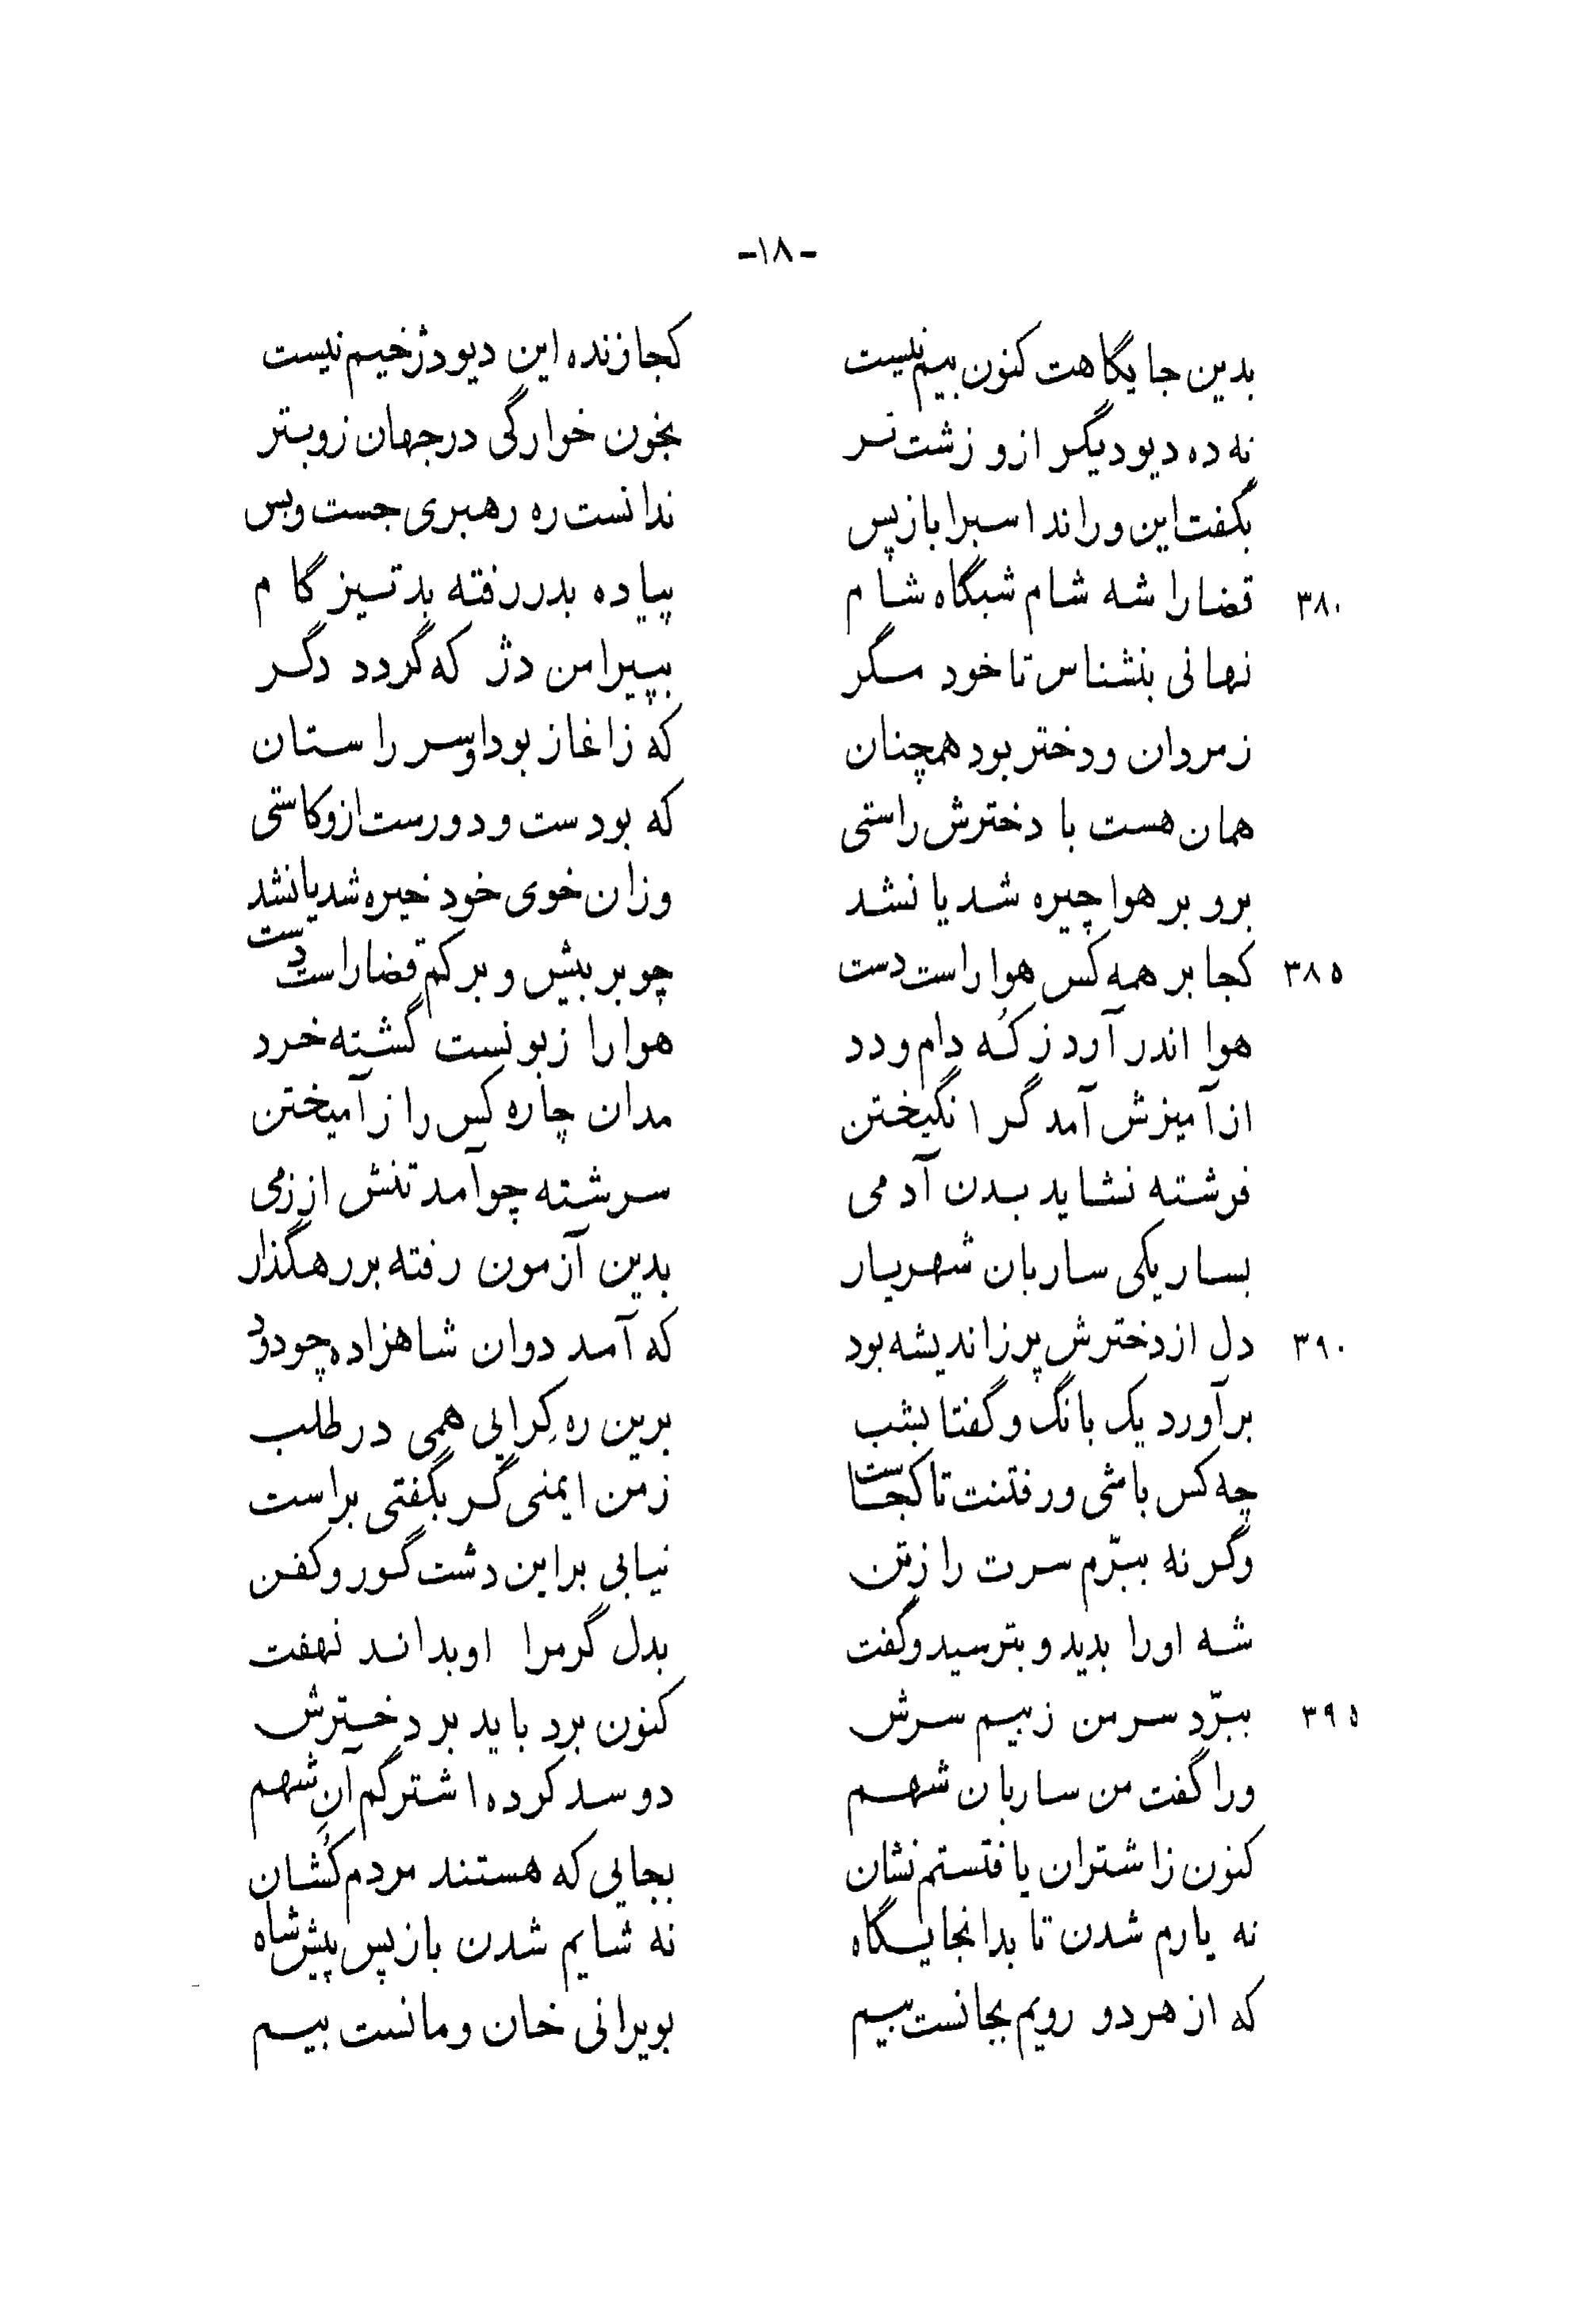 -۱۸-
بدین جایگاهت کنون بیم نیست کجا زنده این دیو دژخیم نیست
نه ده دیو دیگر ازو زشت تر بخون خوارگی در جهان زو بتر
بگفت این و راند اسبرا بازپس ندانست ره رهبری جست و بس
۳۸۰ قضا را شه شام شبگاه شام پیاده بدر رفته بد تیز گام
نهانی بنشناس تا خود مگر بپیرامن دژ که گردد دگر
ز مردان و دختر بود همچنان که ز اغاز بود او سر راستان
همان هست با دخترش راستی که بودست و دورست ازو کاستی
برو بر هوا چیره شد یا نشد وزان خوی خود خیره شد یا نشد
۳۸۵ کجا بر همه کس هوا راست دست چو بر بیش و بر کم قضا راست دست
هوا اندر آرد ز که دام و دد هوا را زبونست گشته خرد
از آمیزش آمد گر انگیختن مدان چاره کس را ز آمیختن
فرشته نشاید بدن آدمی سرشته چو آمد تنش از زمی
بسار یکی ساربان شهریار بدین آزمون رفته بر رهگذار
۳۹۰ دل از دخترش پر ز اندیشه بود که آمد دوان شاهزاده چو دود
برآورد یک بانگ و گفتا بشب برین ره کِرایی همی در طلب
چه کس باشی و رفتنت تا کجاست ز من ایمنی گر بگفتی براست
وگر نه ببرّم سرت را ز تن نیابی بر این دشت گور و کفن
شه او را بدید و بترسید و گفت بدل گر مرا او بداند نهفت
۳۹۵ ببرّد سر من ز بیم سرش کنون برد باید بر دخترش
ورا گفت من ساربان شهم دو سد کرده اشتر گم آنِ شهم
کنون ز اشتران یافتستم نشان بجایی که هستند مردم کُشان
نه یارم شدن تا بدانجایگاه نه شایم شدن بازپس پیش شاه
که از هر دو رویم بجانست بیم بویرانی خان و مانست بیم